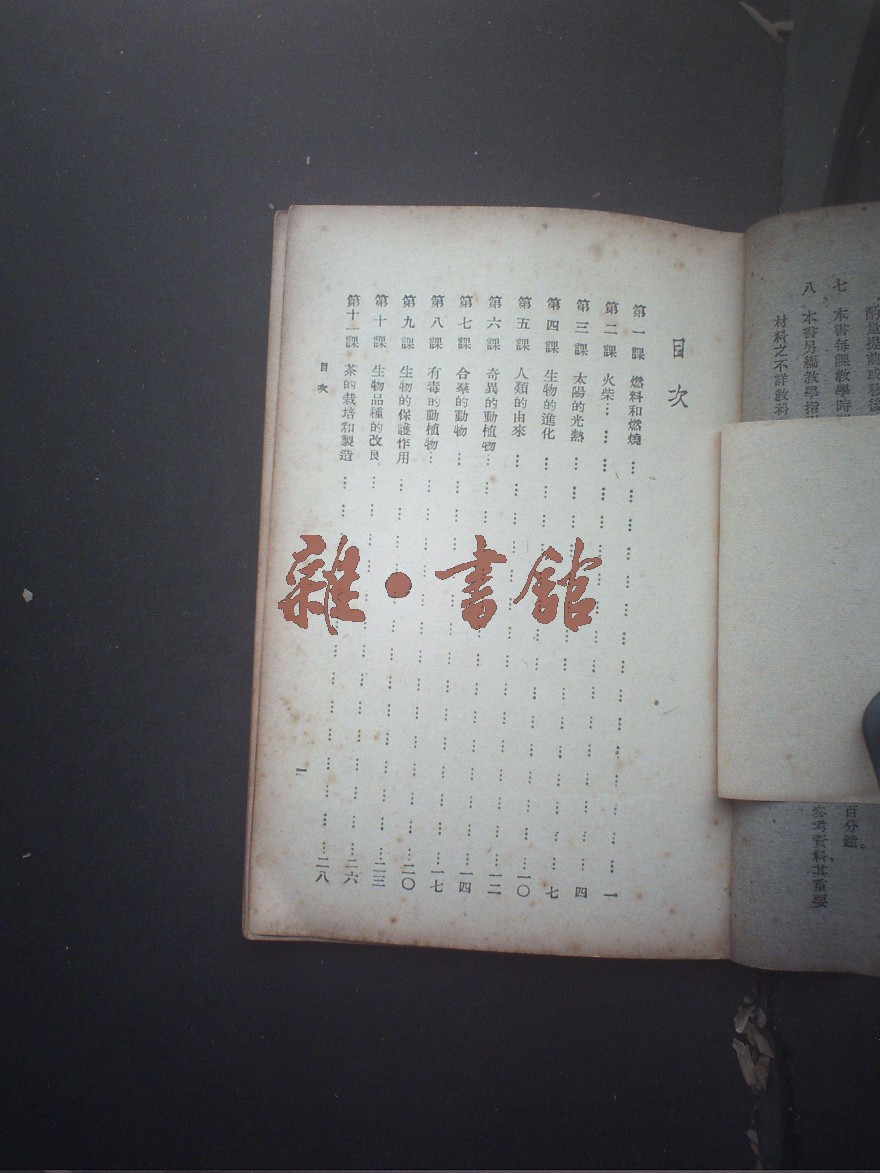 酌量提前或移後
七 本書每課教學時
百分鐘。
八 本書另編教學指
參考資料，其重要
材料之不詳教科
目次
第一課 燃料和燃燒………………一
第二課 火柴………………四
第三課 太陽的光熱………………七
第四課 生物的進化………………一〇
第五課 人類的由來………………一二
第六課 奇異的動植物………………一四
第七課 合羣的動物………………一七
第八課 有毒的動植物………………二〇
第九課 生物的保護作用………………二三
第十課 生物品種的改良………………二六
第十一課 茶的栽培和製造………………二八
目次
一
雜・書館